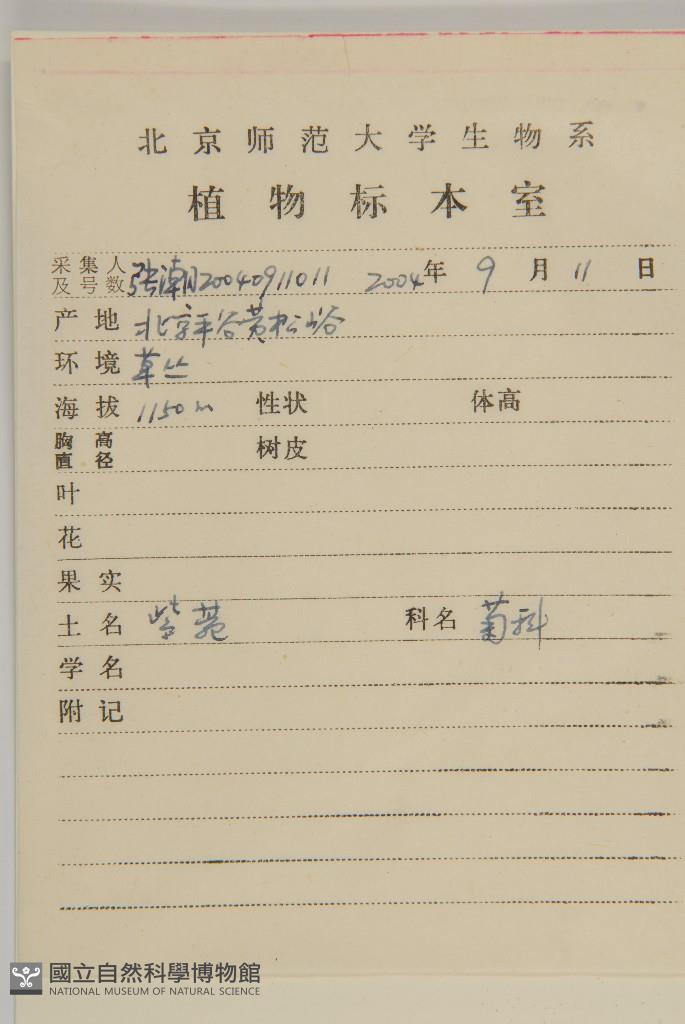 北京师范大学生物系
植物标本室
采集人及号数 张潮20040911011 2004年9月11日
产地 北京平谷黄松峪
环境 草丛
海拔 1150m 性状 体高
胸高直径 树皮
叶
花
果实
土名 紫菀 科名 菊科
学名
附记
國立自然科學博物館
NATIONAL MUSEUM OF NATURAL SCIENCE